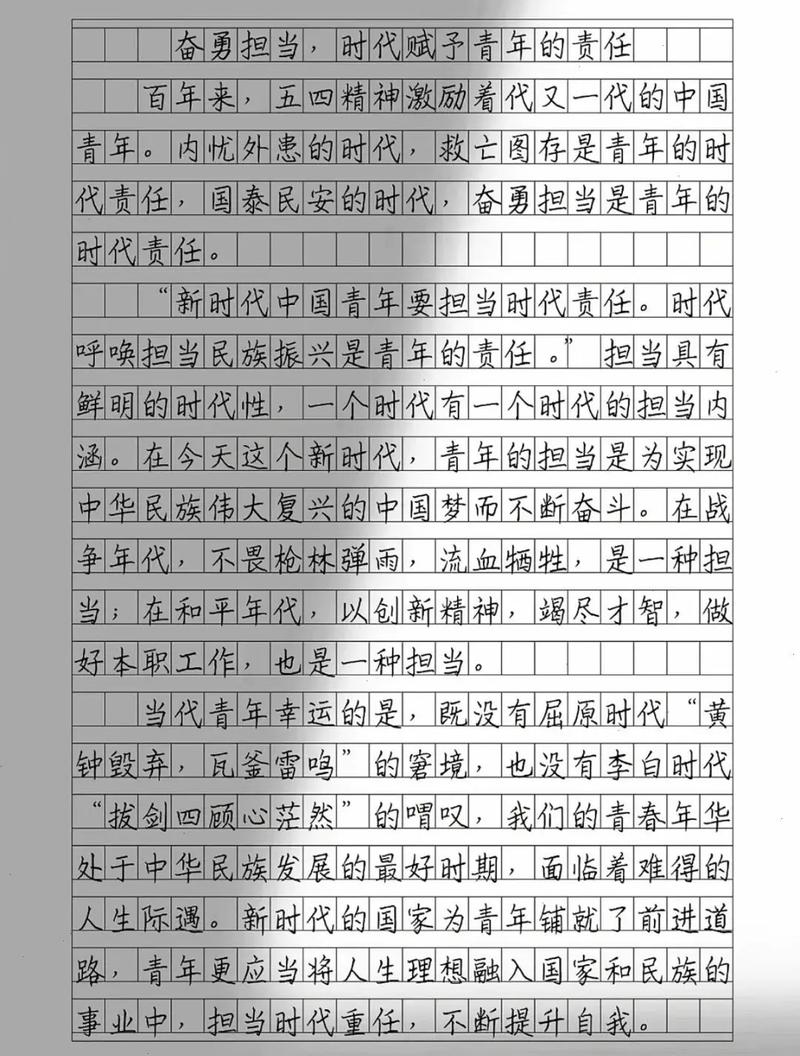 奋勇担当，时代赋予青年的责任
百年来，五四精神激励着代又一代的中国
青年。内忧外患的时代，救亡图存是青年的时
代责任，国泰民安的时代，奋勇担当是青年的
时代责任。
“新时代中国青年要担当时代责任。时代
呼唤担当民族振兴是青年的责任。”担当具有
鲜明的时代性，一个时代有一个时代的担当内
涵。在今天这个新时代，青年的担当是为实现
中华民族伟大复兴的中国梦而不断奋斗。在战
争年代，不畏枪林弹雨，流血牺牲，是一种担
当；在和平年代，以创新精神，竭尽才智，做
好本职工作，也是一种担当。
当代青年幸运的是，既没有屈原时代“黄
钟毁弃，瓦釜雷鸣”的窘境，也没有李白时代
“拔剑四顾心茫然”的喟叹，我们的青春年华
处于中华民族发展的最好时期，面临着难得的
人生际遇。新时代的国家为青年铺就了前进道
路，青年更应当将人生理想融入国家和民族的
事业中，担当时代重任，不断提升自我。